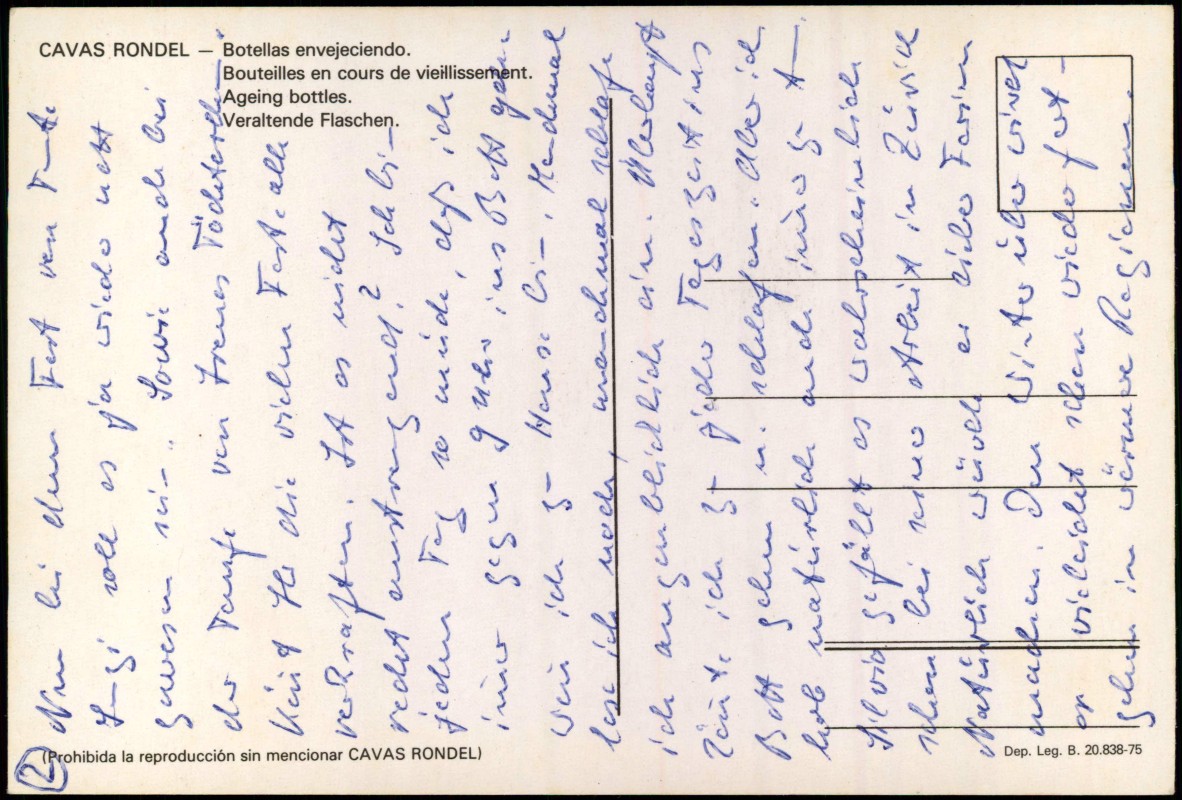 CAVAS RONDEL — Botellas envejeciendo.
Bouteilles en cours de vieillissement.
Ageing bottles.
Veraltende Flaschen.
Nun bei dem Fest von Tante
soll es ja wieder nett
gewesen sein. Sowie auch bei
der Taufe von Irenes Töchterlein.
Könnt Ihr die vielen Feste alle
verkraften. Ist es nicht
recht anstrengend? Ich bin
jeden Tag so müde, daß ich
immer gegen 9 Uhr ins Bett gehe
wenn ich zu Hause bin. Manchmal
lese ich noch, manchmal schlafe
ich augenblicklich ein. Überhaupt
könnte ich zu jeder Tageszeit ins
Bett gehen u. schlafen. Aber ich
hab natürlich auch immer zu tun
Silvio gefällt es wahrscheinlich
schon bei seiner Arbeit in Zürich
Natürlich würde er lieber Ferien
machen. Den Winter über wird
er vielleicht schon wieder fort-
gehen in wärmere Regionen.
(2)
(Prohibida la reproducción sin mencionar CAVAS RONDEL)
Dep. Leg. B. 20.838-75